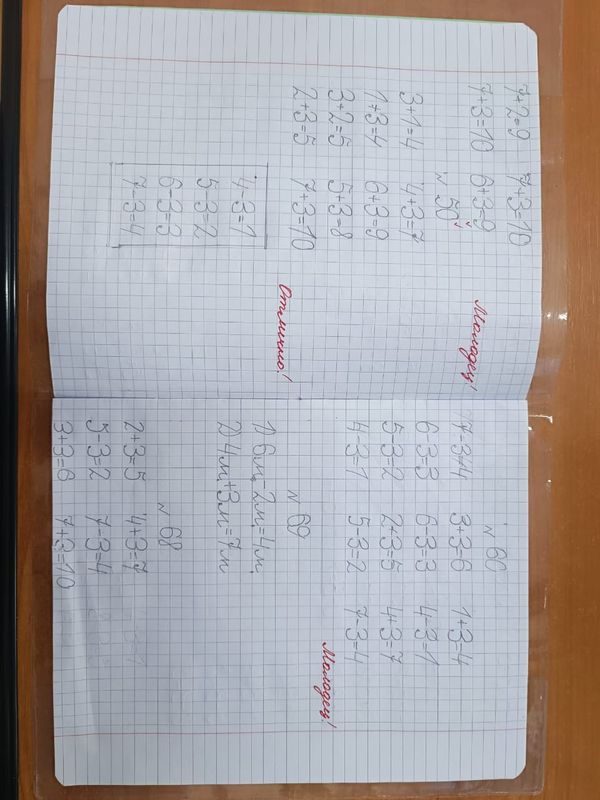 7+2=9 7+3=10
7+3=10 6+3=9 Молодец!
№ 50
3+1=4 4+3=7
1+3=4 6+3=9
3+2=5 5+3=8
2+3=5 7+3=10
Отлично!
4-3=1
5-3=2
6-3=3
7-3=4
№ 60
7-3=4 3+3=6 1+3=4
6-3=3 6-3=3 4-3=1
5-3=2 2+3=5 4+3=7
4-3=1 5-3=2 7-3=4
Молодец!
№ 69
1) 6м-2м=4м
2) 4м+3м=7м
№ 68
2+3=5 4+3=7
5-3=2 7-3=4
3+3=6 7+3=10